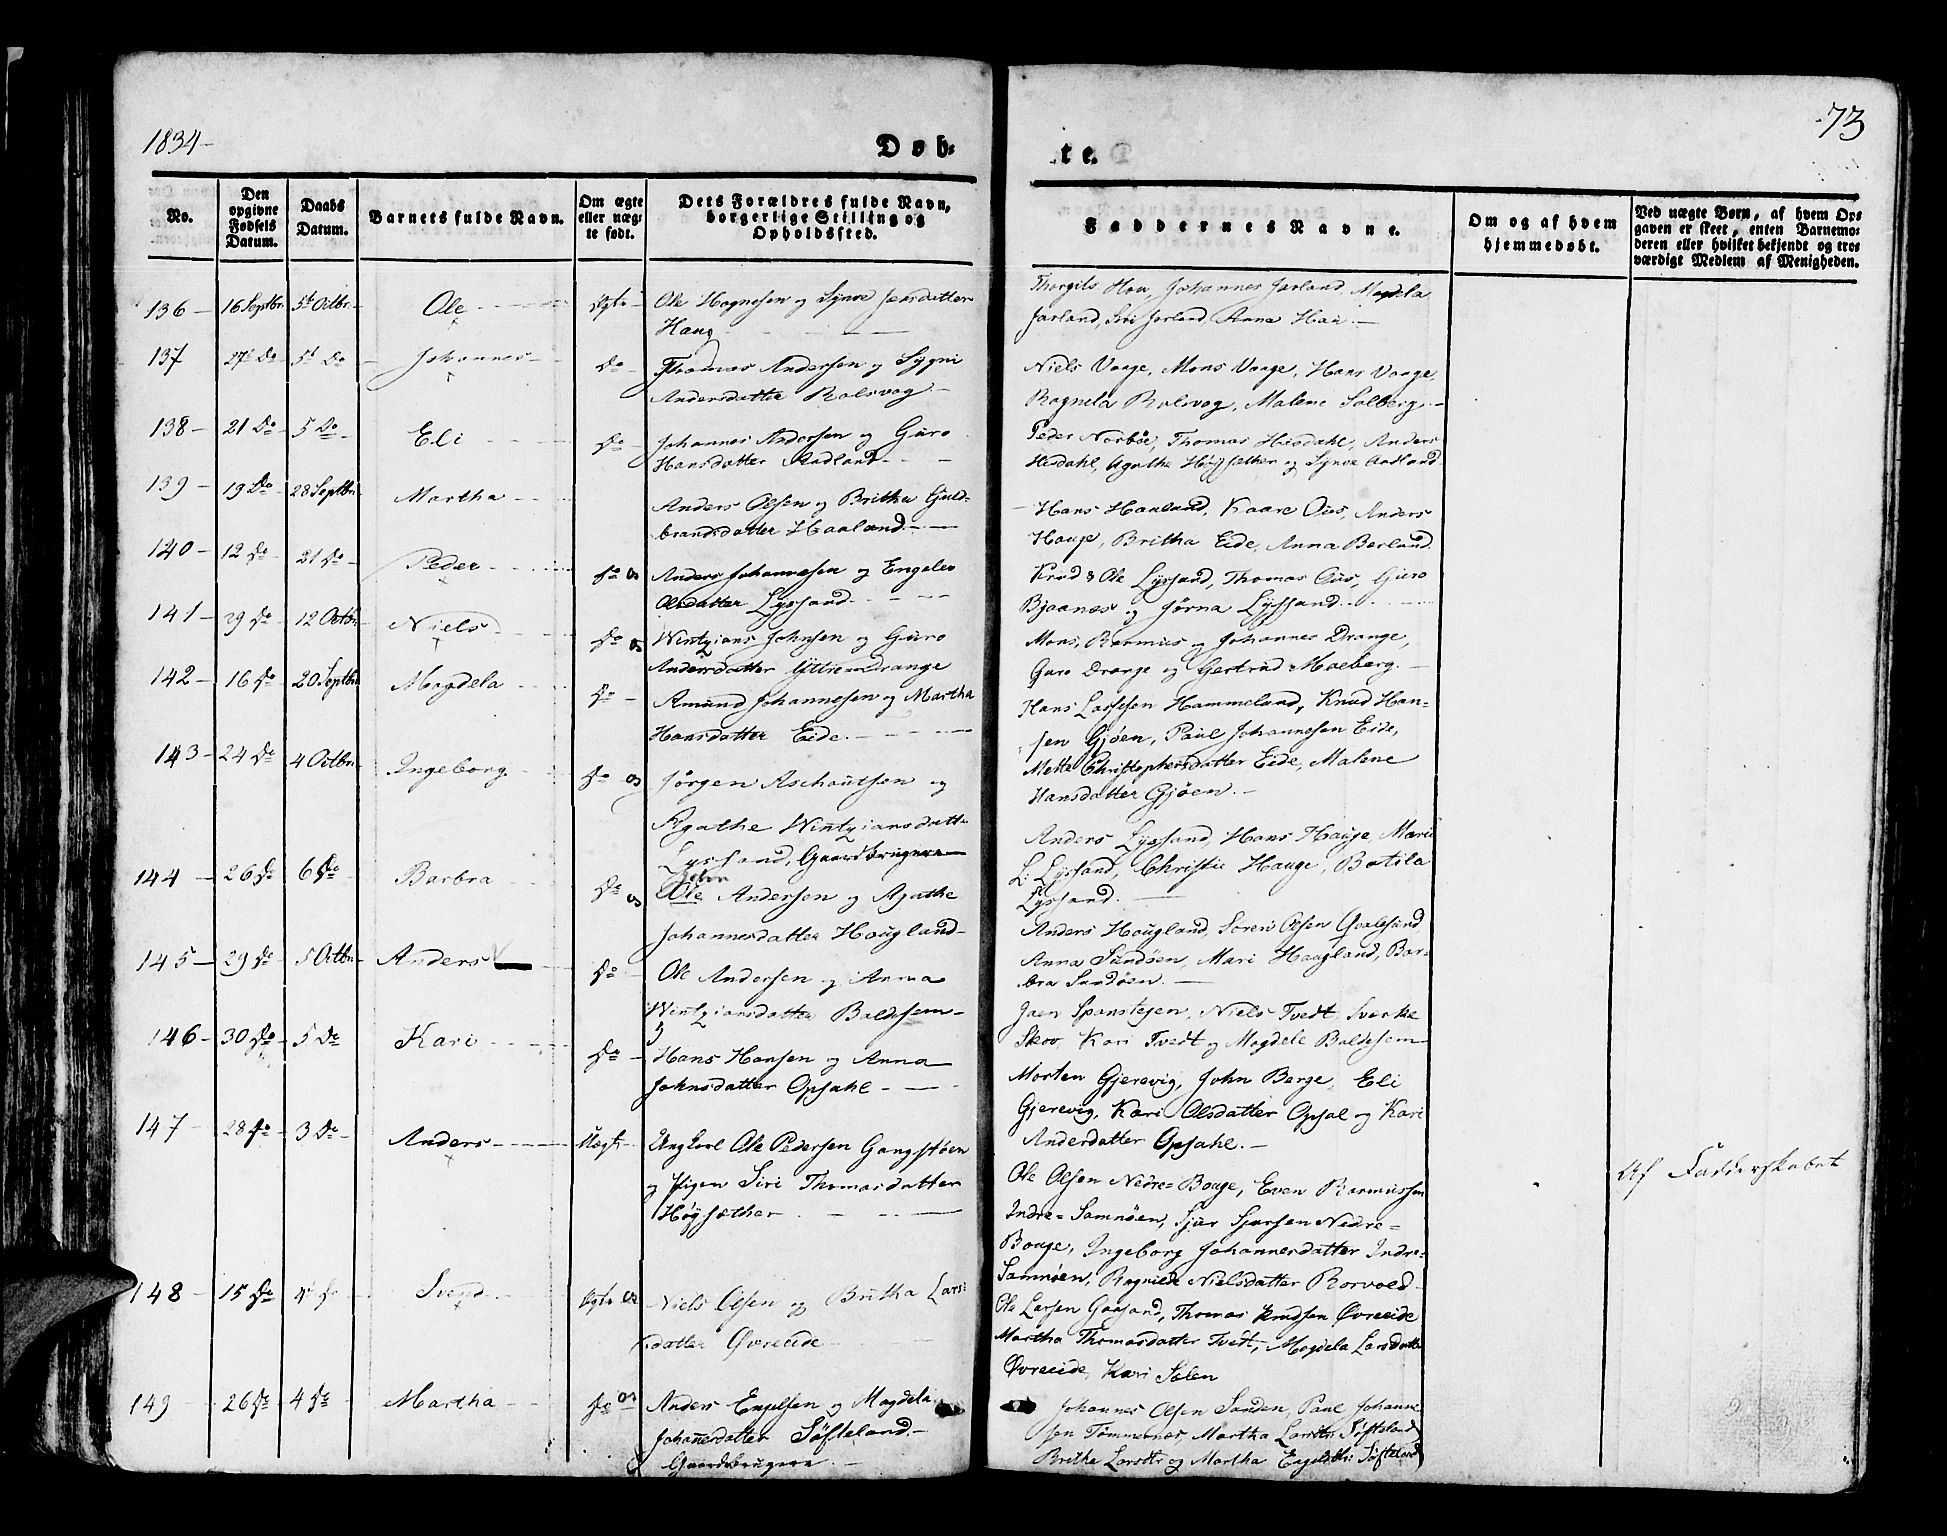 1834-
Døb-
te.
73
No.
Den opgivne Fødsels Datum.
Daabs Datum.
Barnets fulde Navn.
Om ægte eller uægte født.
Dets Forældres fulde Navn, borgerlige Stilling og Opholdssted.
Faddernes Navne.
Om og af hvem hjemmedøbt.
Ved uægte Børn, af hvem Opgaven er skeet, enten Barnemoderen eller hvilket bekjendt og troværdigt Medlem af Menigheden.
136 - 16 Septbr 5t Octbr - Ole - Ægte Ole Hognesen og Synve Jensdatter
Haug
Thorgils Hou, Johannes Jarland, Magdela
Jarland, Siri Jarland, Anna Hou. -
137 27d Do 5t Do - Johannes - Do - Thomas Andersen og Sygni
Andersdatter Rolsvog -
Niels Vaage, Mons Vaage, Hans Vaage,
Ragnela Rolsvog, Malene Solberg. -
138 - 21 Do - 5 Do - Eli - Do - Johannes Andersen og Guro
Hansdatter Aadland -
Peder Norbøe, Thomas Hisdahl, Anders
Hisdahl, Agathe Høysæther og Synve Aadland
139 - 19 Do - 28 Septbr - Martha - Anders Olsen og Britha Guld-
brandsdatter Haaland -
- Hans Haaland, Kaare Ous, Anders
Hauge, Britha Eide, Anna Berland
140 - 12 Do - 21 Do - Peder - Do Anders Johannesen og Engelev
Olsdatter Lyssand -
Knud & Ole Lyssand, Thomas Ous, Guro
Bjaanes og Jørna Lyssand -
141 - 29 Do - 12 Octbr Niels - Do Wintzians Johnsen og Guro
Andersdatter Yttre=Drange
Mons, Rasmus og Johannes Drange,
Guro Drange og Gertrud Moeberg. -
142 - 16 Do - 20 Septbr Magdela - Do - Amund Johannesen og Martha
Hansdatter Eide. -
Hans Lassesen Hammeland, Knud Han=
sen Gjøen, Paul Johannesen Eide,
Mette Christophersdatter Eide, Malene
Hansdatter Gjøen. -
143 - 24 Do - 4 Octbr - Ingeborg. - Do Jørgen Aschoutsen og
Agathe Wintziansdatter
Lyssand, Gaardbrugere
Anders Lyssand, Hans Hauge, Mari
L: Lyssand, Christie Hauge, Botila
Lyssand. -
144 - 26 Do 6 Do - Barbra - Do Ole Andersen og Agathe
Johannesdatter Hougland -
Anders Hougland, Søren Olsen Qvalesund
Anna Sundøen, Mari Hougland, Bar=
bra Sundøen. -
145 - 29 Do - 5 Octbr - Anders - Do - Ole Andersen og Anna
Wintziansdatter Baldesem -
Jaen Spanstejen, Niels Tvedt, Sværke
Skov, Kari Tvedt og Magdele Baldesem
146 - 30 Do - 5 Do Kari - Do - Hans Hansen og Anna
Johnsdatter Opsahl -
Morten Gjerevig, John Berge, Eli
Gjerevig, Kari Olsdatter Opsal og Kari
Andersdatter Opsahl. -
147 - 28 Do - 3 Do - Anders - Uægt - Ungkarl Ole Pedersen Gangstøen
og Pigen Siri Thomasdatter
Høysæther -
Ole Olsen Nedre=Bouge, Even Rasmussen
Indre=Samnøen, Sjur Sjursen Nedre=
Bouge, Ingeborg Johannesdatter Indre=
Samnøen, Ragnilde Nielsdatter Rorvold -
Af Fadderskabet
148 - 15 Do 4 Do - Svend - Ægte Niels Olsen og Britha Lars:
datter Øvreeide
Ole Larsen Gaasand, Thomas Knudsen Øvreeide
Martha Thomasdatter Tvedt, Magdela Larsdatter
Øvreeide, Kari Solen
149 - 26 Do - 4 Do - Martha - Do Anders Engelsen og Magdela
Johannesdatter Søfteland -
Gaardbrugere -
Johannes Olsen Sanden, Paul Johanne
sen Tømmernes, Martha Larsdtr Søfteland
Britha Larsdtr og Martha Engelsdtr: Søfteland